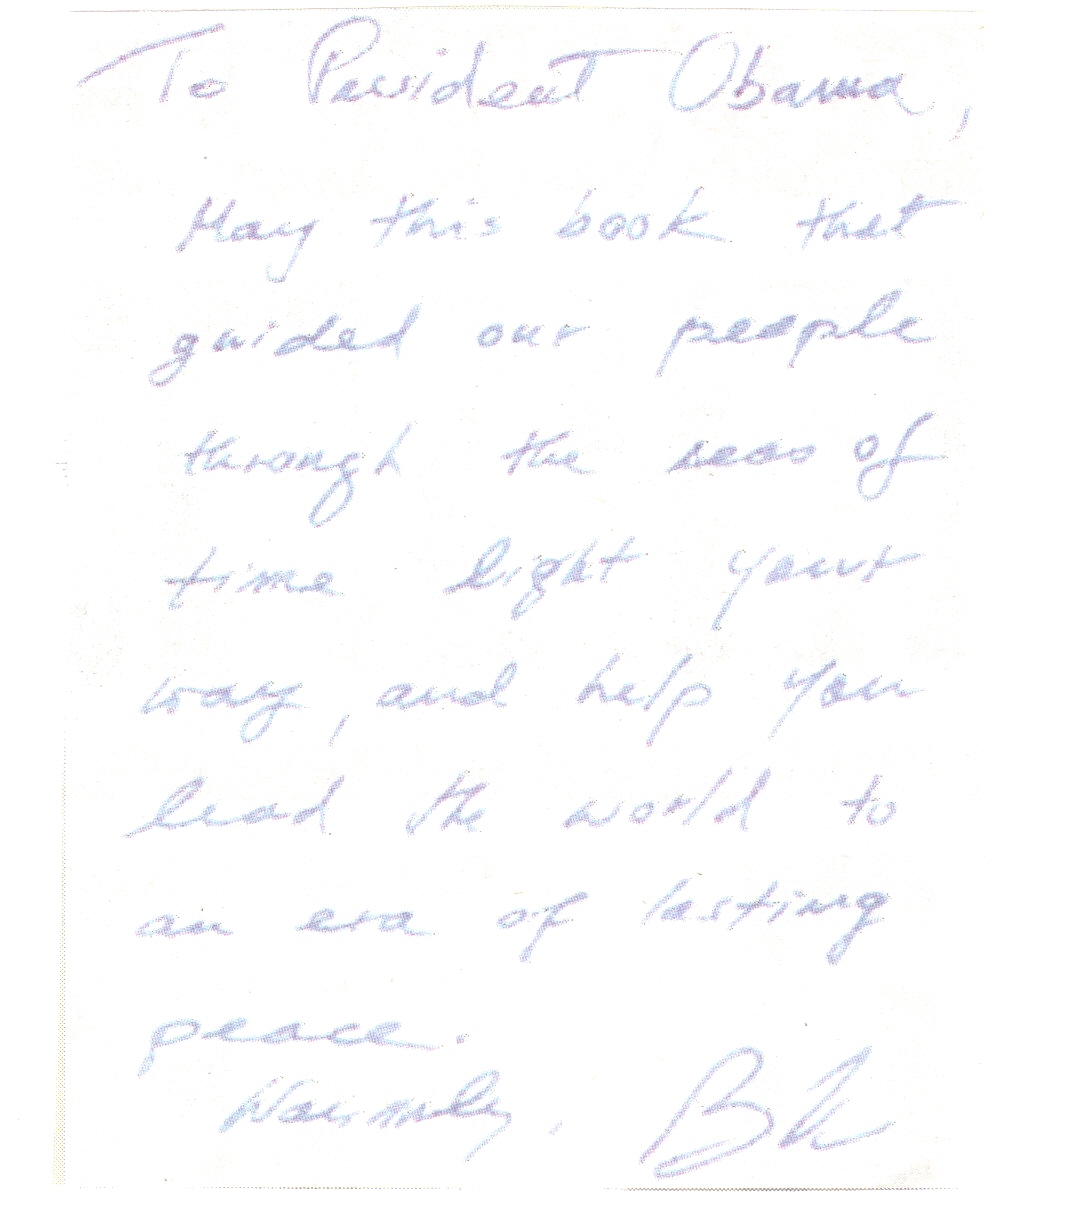 To President Obama,
May this book that
guided our people
through the seas of
time light your
way, and help you
lead the world to
an era of lasting
peace.
Warmly,